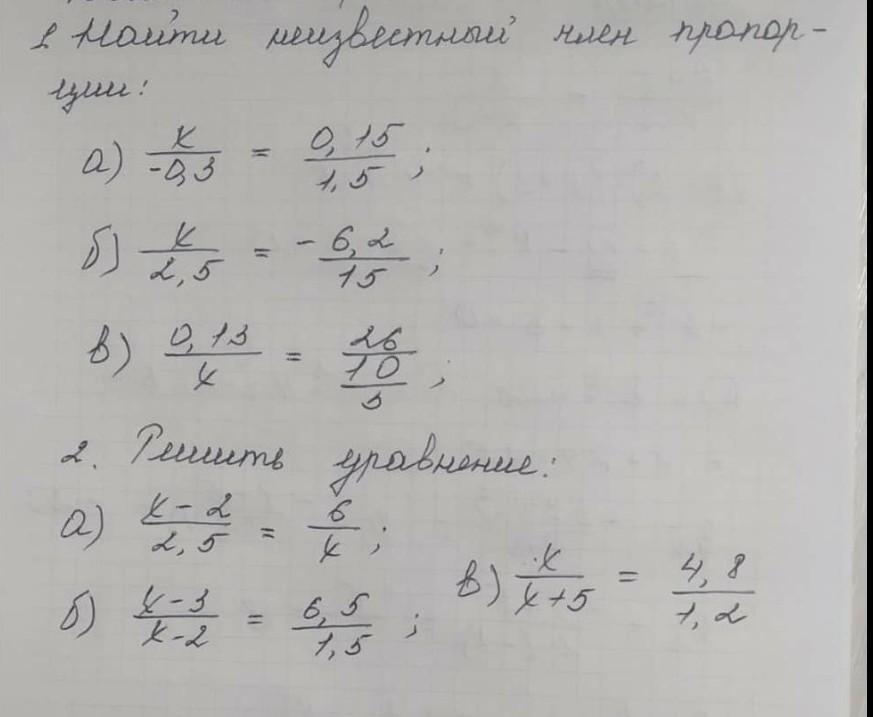 1. Найти неизвестный член пропор-
ции:
а) x/-0,3 = 0,15/1,5 ;
б) x/2,5 = - 6,2/15 ;
в) 0,13/x = 26/(10/3) ;
2. Решить уравнение:
а) x-2/2,5 = 6/x ;
б) x-3/x-2 = 6,5/1,5 ;
в) x/x+5 = 4,8/1,2